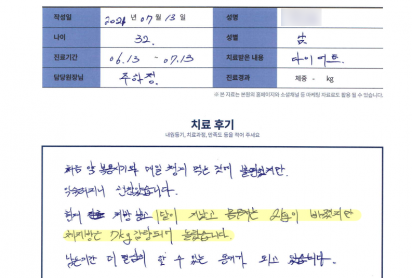 작성일 2021 07 13 일 성명
나이 32. 성별 女
진료기간 06.13 - 07.13 치료받은 내용 다이어트
담당원장님 진료경과 체중 - kg
※ 본 자료는 본원의 홈페이지와 소셜채널 등 마케팅 자료로 활용 될 수 있습니다.
치료 후기
내원동기, 치료과정, 만족도 등을 적어 주세요
처음 약 복용시기와 매일 챙겨 먹는 것이 불편했지만
익숙해지니 괜찮았습니다.
1달이 지났고 몸무게는 2kg이 빠졌지만
체지방은 7kg 감량되어 놀랐습니다.
남은기간 더 열심히 할 수 있는 동기가 되고 있습니다.